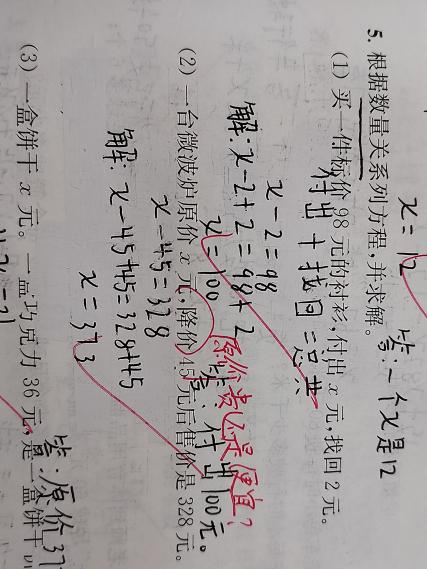 x = 12
答:一个x是12
5. 根据数量关系列方程,并求解。
(1) 买一件标价 98 元的衬衫,付出 x 元,找回 2 元。
付出 + 找回 = 总共
x-2=98
解: x-2+2=98+2
x=100
答:付出100元。
原价贵还是便宜?
(2) 一台微波炉原价 x 元,降价 45 元后售价是 328 元。
x-45=328
解: x-45+45=328+45
x=373
答:原价37
(3) 一盒饼干 x 元。一盒巧克力 36 元,是一盒饼干